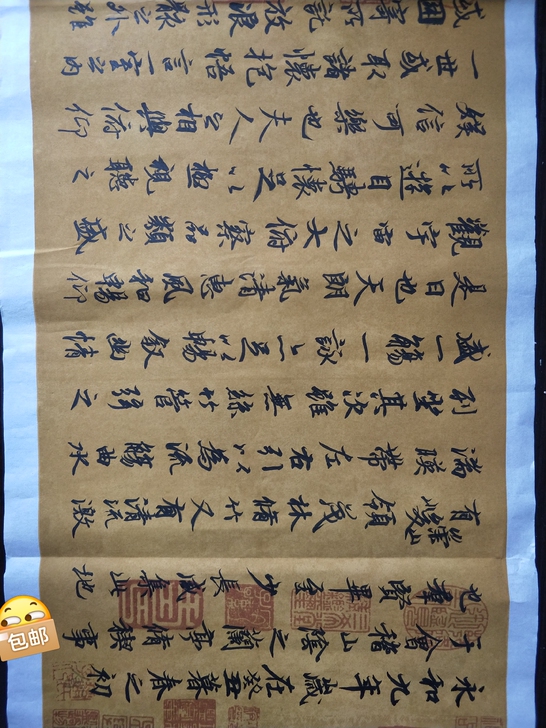 永和九年歲在癸丑暮春之初
于會稽山陰之蘭亭脩禊事
也群賢畢至少長咸集此地
有崇山峻領茂林脩竹又有清流激
湍暎帶左右引以為流觴曲水
列坐其次雖無絲竹管弦之
盛一觴一詠亦足以暢敘幽情
是日也天朗氣清惠風和暢仰
觀宇宙之大俯察品類之盛
所以遊目騁懷足以極視聽之
娛信可樂也夫人之相與俯仰
一世或取諸懷抱悟言一室之內
或因寄所託放浪形骸之外雖
包邮